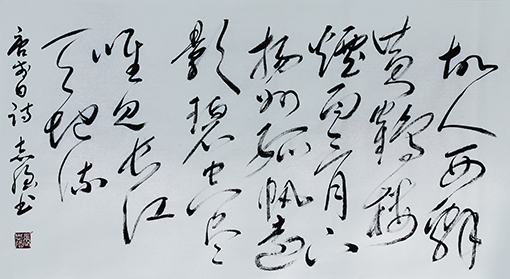 故人西辞
黄鶴楼
煙雨三月下
揚州孤帆远
影碧空尽
唯见长江
天地流
唐李白詩 志书